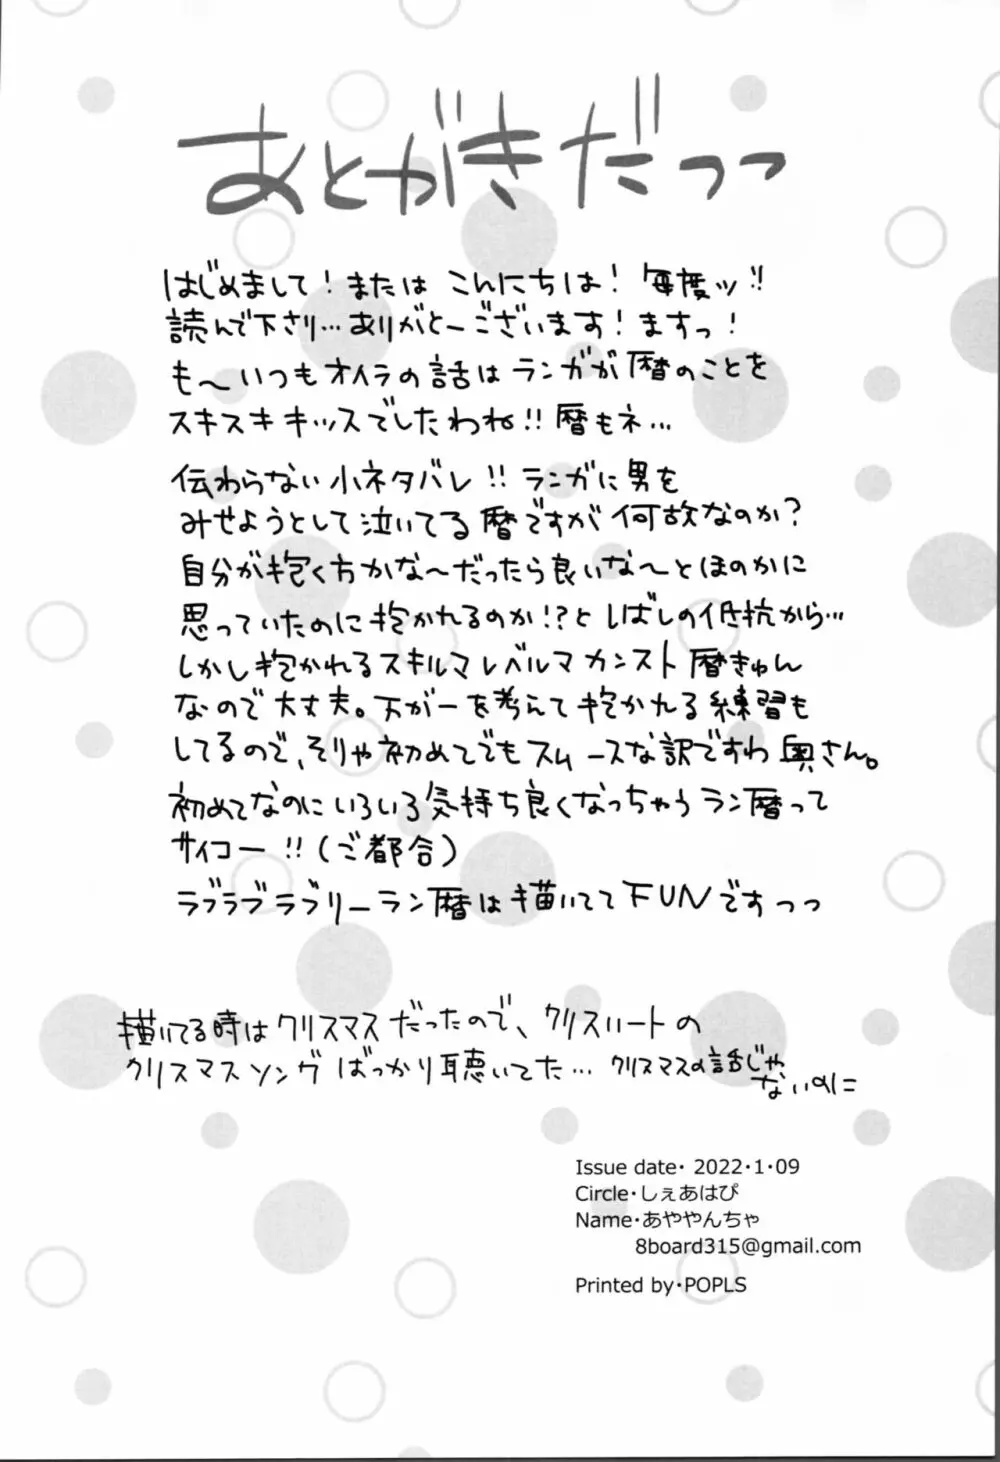 あとがきだっっ
はじめまして！または こんにちは！ 毎度ッ!!
読んで下さり…ありがとーございます！ますっ！
も〜いつもオイラの話は ランガが暦のことを
スキスキキッスでしたわね!! 暦もネ…
伝わらない小ネタバレ!! ランガに男を
みせようとして泣いてる暦ですが何故なのか？
自分が抱く方かな〜だったら良いな〜とほのかに
思っていたのに抱かれるのか!?としばしの抵抗から…
しかし抱かれるスキルマレベルマカンスト暦きゅん
なので大丈夫。万が一を考えて抱かれる練習も
してるので、そりゃ初めてでもスムースな訳ですわ奥さん。
初めてなのにいろいろ気持ち良くなっちゃうラン暦って
サイコー!!（ご都合）
ラブラブラブリーラン暦は描いててFUNですっっ
描いてる時はクリスマスだったので、クリスハートの
クリスマスソングばっかり聴いてた… クリスマスの話じゃ
ないのに
Issue date・ 2022・1・09
Circle・しぇあはぴ
Name・あややんちゃ
8board315@gmail.com
Printed by・POPLS